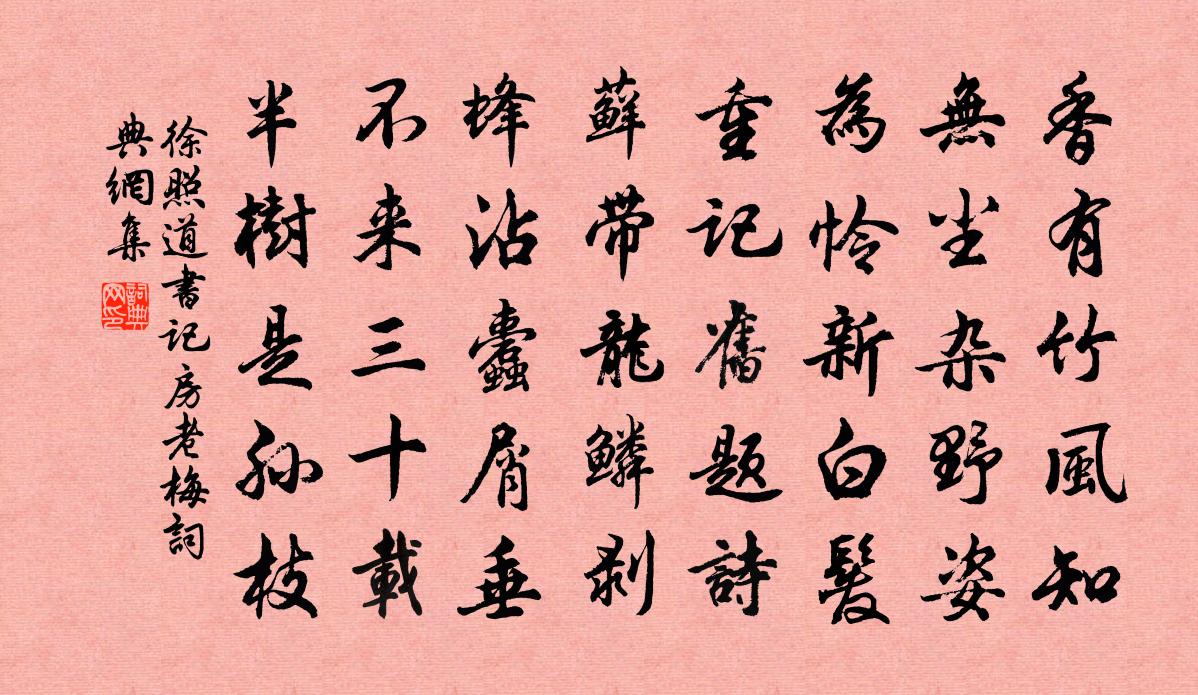 香有竹風知
無尘杂野姿
為怜新白髮
重记舊题詩
蘚带龍鳞剥
蜂沾蠹屑垂
不来三十載
半樹是孙枝
徐照道書记房老梅詞
典網集
詞典网印